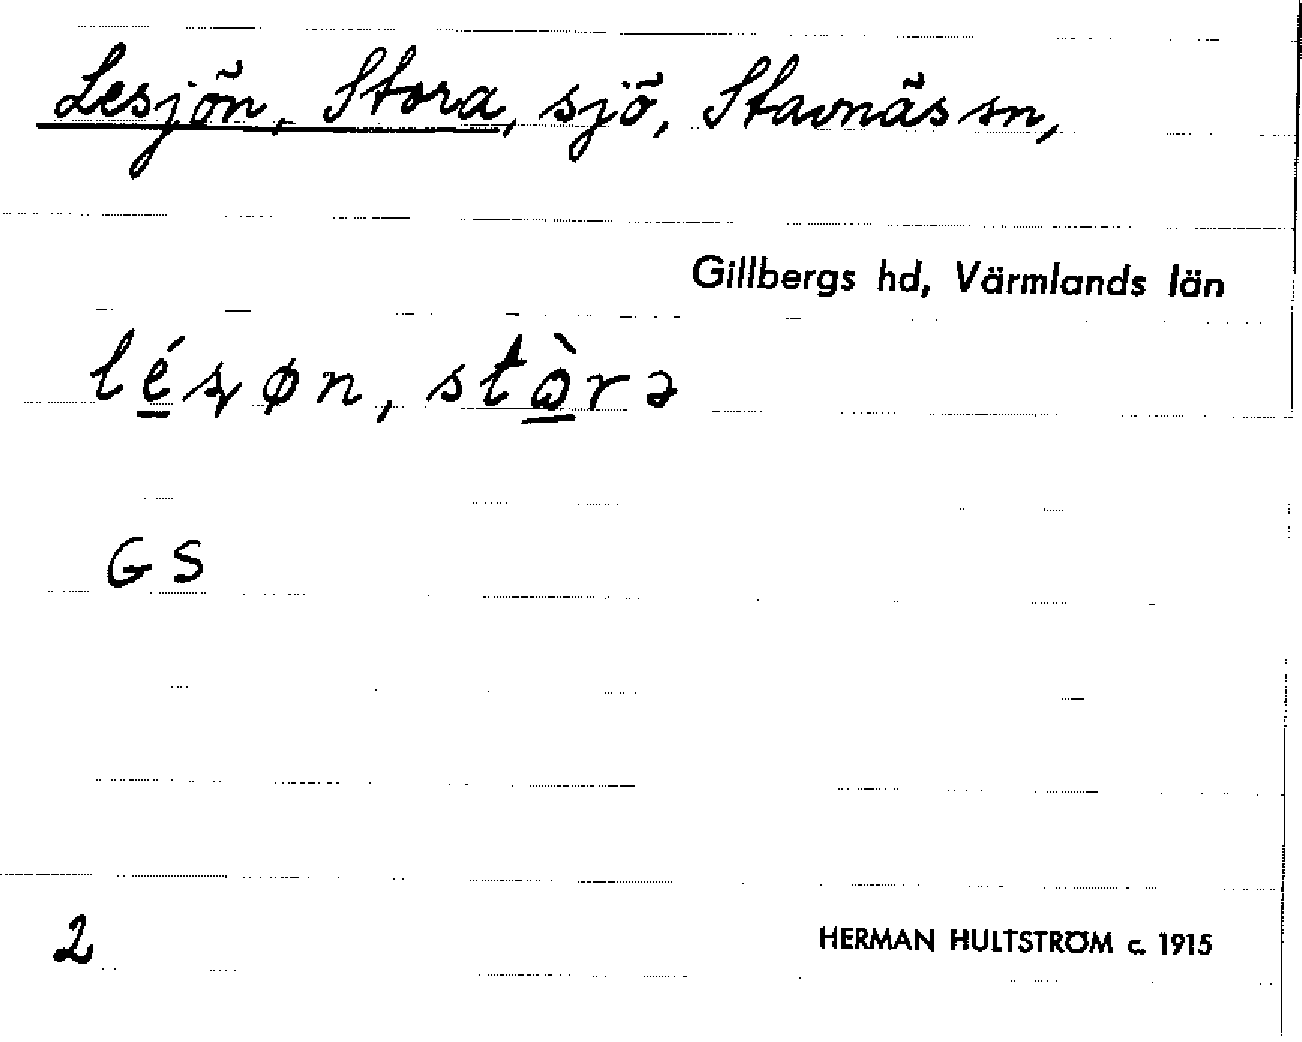 Lesjön, Stora, sjö, Stavnäs sn,
Gillbergs hd, Värmlands län
lésøn, stòrə
GS
2
HERMAN HULTSTRÖM c. 1915